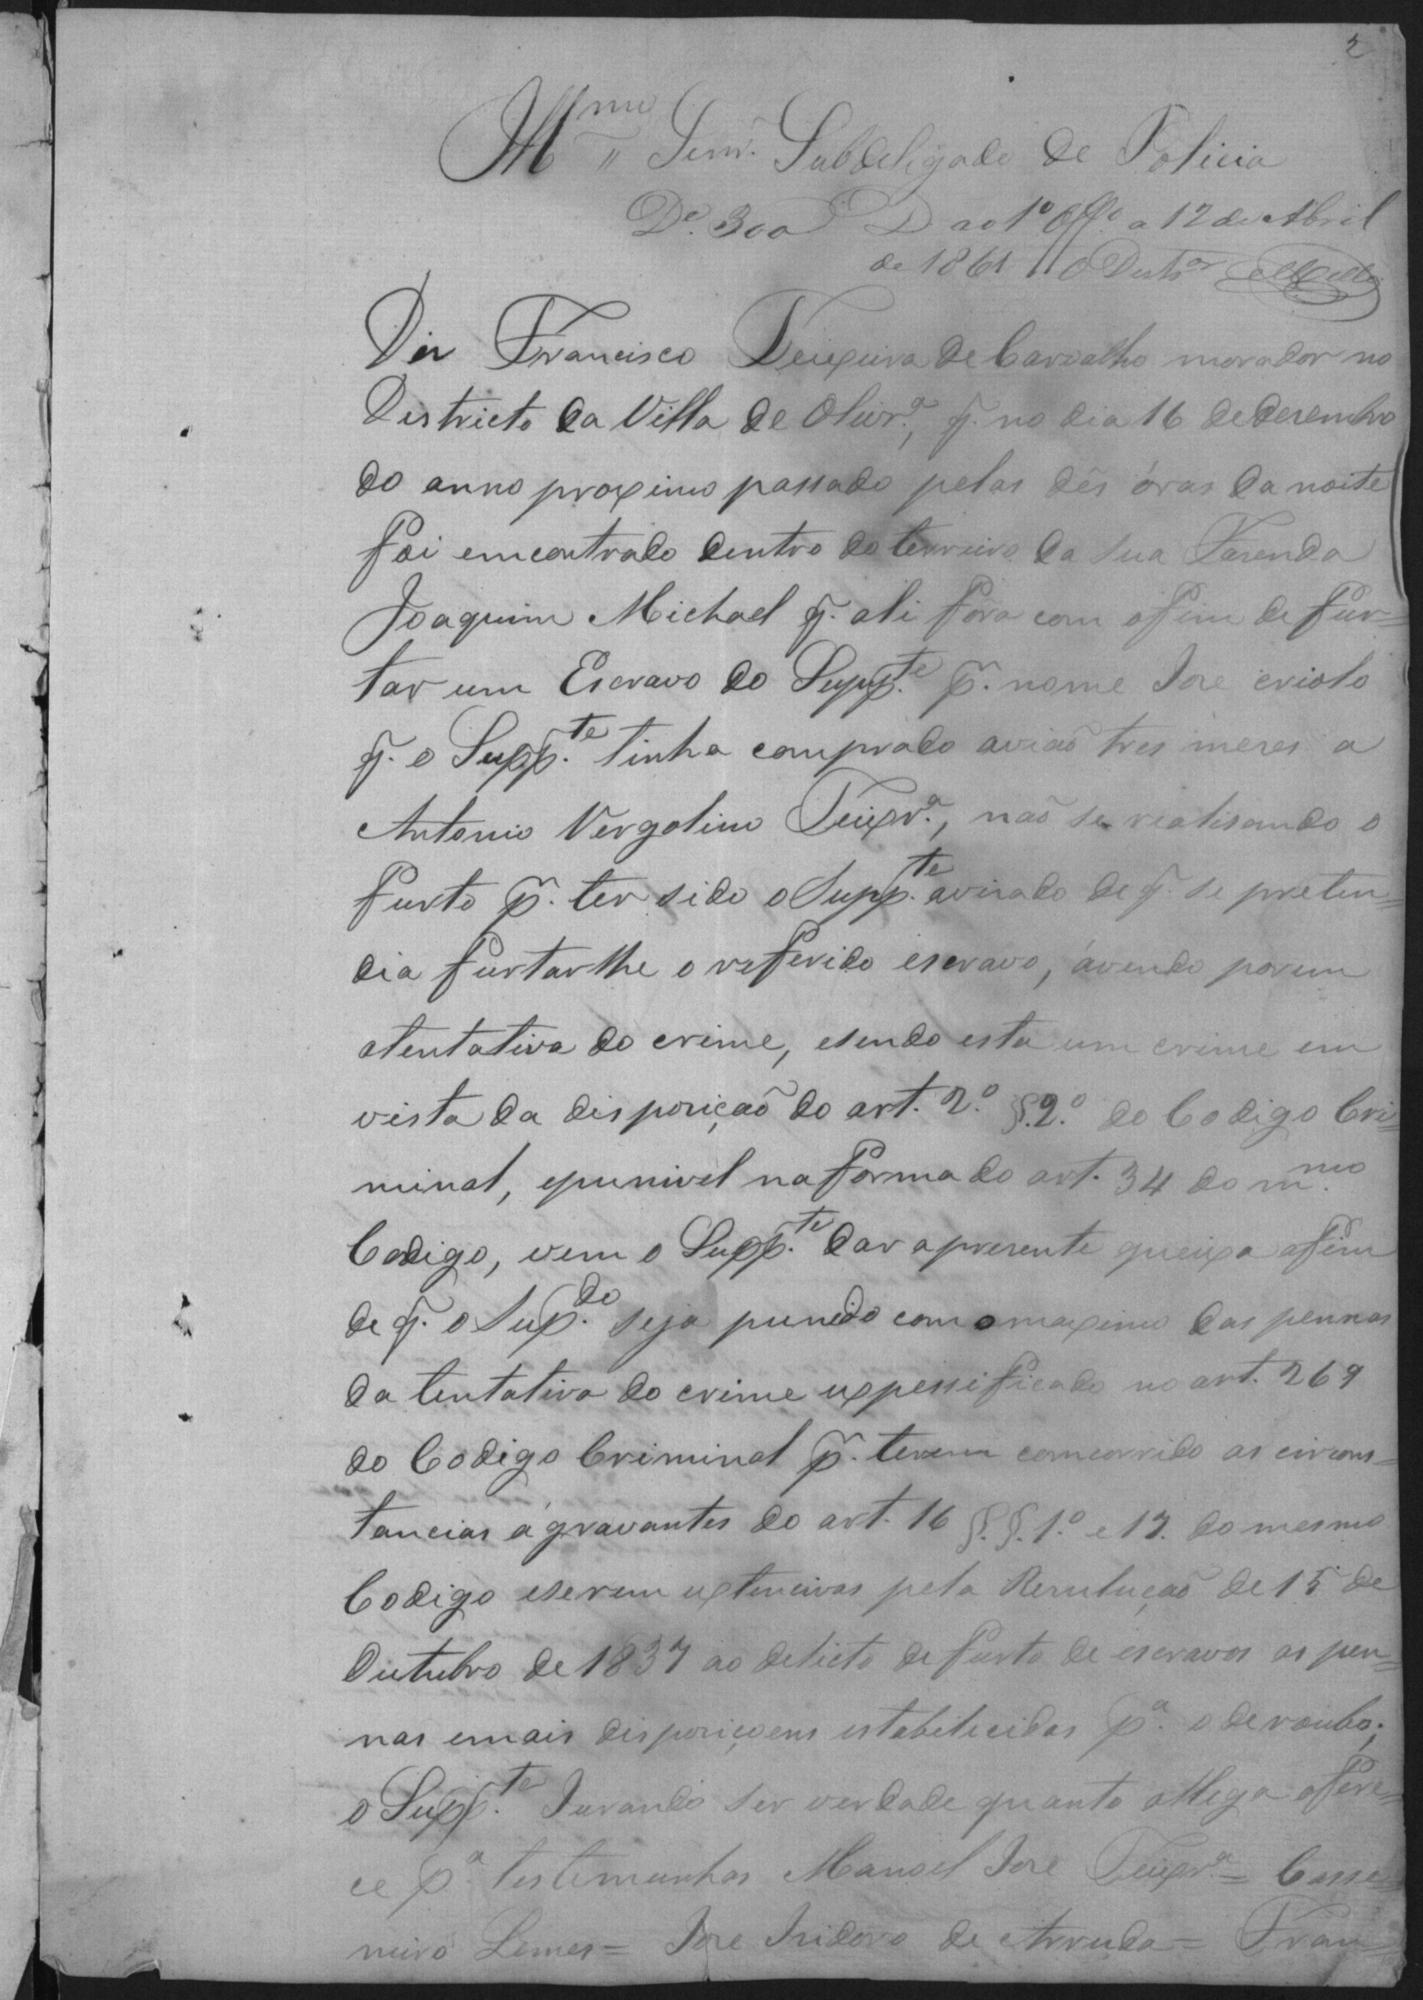 2
Illmo Senr. Subdeligado de Policia
Do. 300 D ao 1º Offo. a 12 de Abril
de 1861 O Destor Mello
Diz Francisco Teixeira de Carvalho morador no
Districto da Villa de Olivrª, q. no dia 16 de desembro
do anno proximo passado pelas dês óras da noite
foi emcontrado dentro do terreiro da sua Fasenda
Joaquim Michael q. ali fôra com ofim de fur=
tar um Escravo do Suppte. pr. nome Jose criolo
q. o Suppte. tinha comprado aviaõ tres meses a
Antonio Vergolino Teixrª, naõ se realisando o
furto pr. ter sido o Suppte. avisado de q. se preten=
dia furtarlhe o referido escravo, ávendo porem
atentativa do crime, esendo esta um crime em
vista da disposiçaõ do art. 2.º §.2.º do Codigo Cri=
minal, epunivel na forma do art. 34 do mmo.
Codigo, vem o Suppte. dar apresente queixa afim
de q. o Supdo. seja punido com o maximo das pennas
da tentativa do crime expessificado no art. 269
do Codigo Criminal pr. terem comcorrido as circons=
tancias ágravantes do art. 16 §.§. 1.º e 17. do mesmo
Codigo eserem extencivas pela Resuluçaõ de 15 de
Outubro de 1837 ao delicto de furto de escravos as pen=
nas emais disposiçoens estabilicidas pª. o de roubo;
o Suppte. Jurando ser verdade quanto allega ofere=
ce pª. testemunhas Manoel Jose Teixrª = Casse=
miro Lemes = Jose Isidoro de Arruda = Fran=